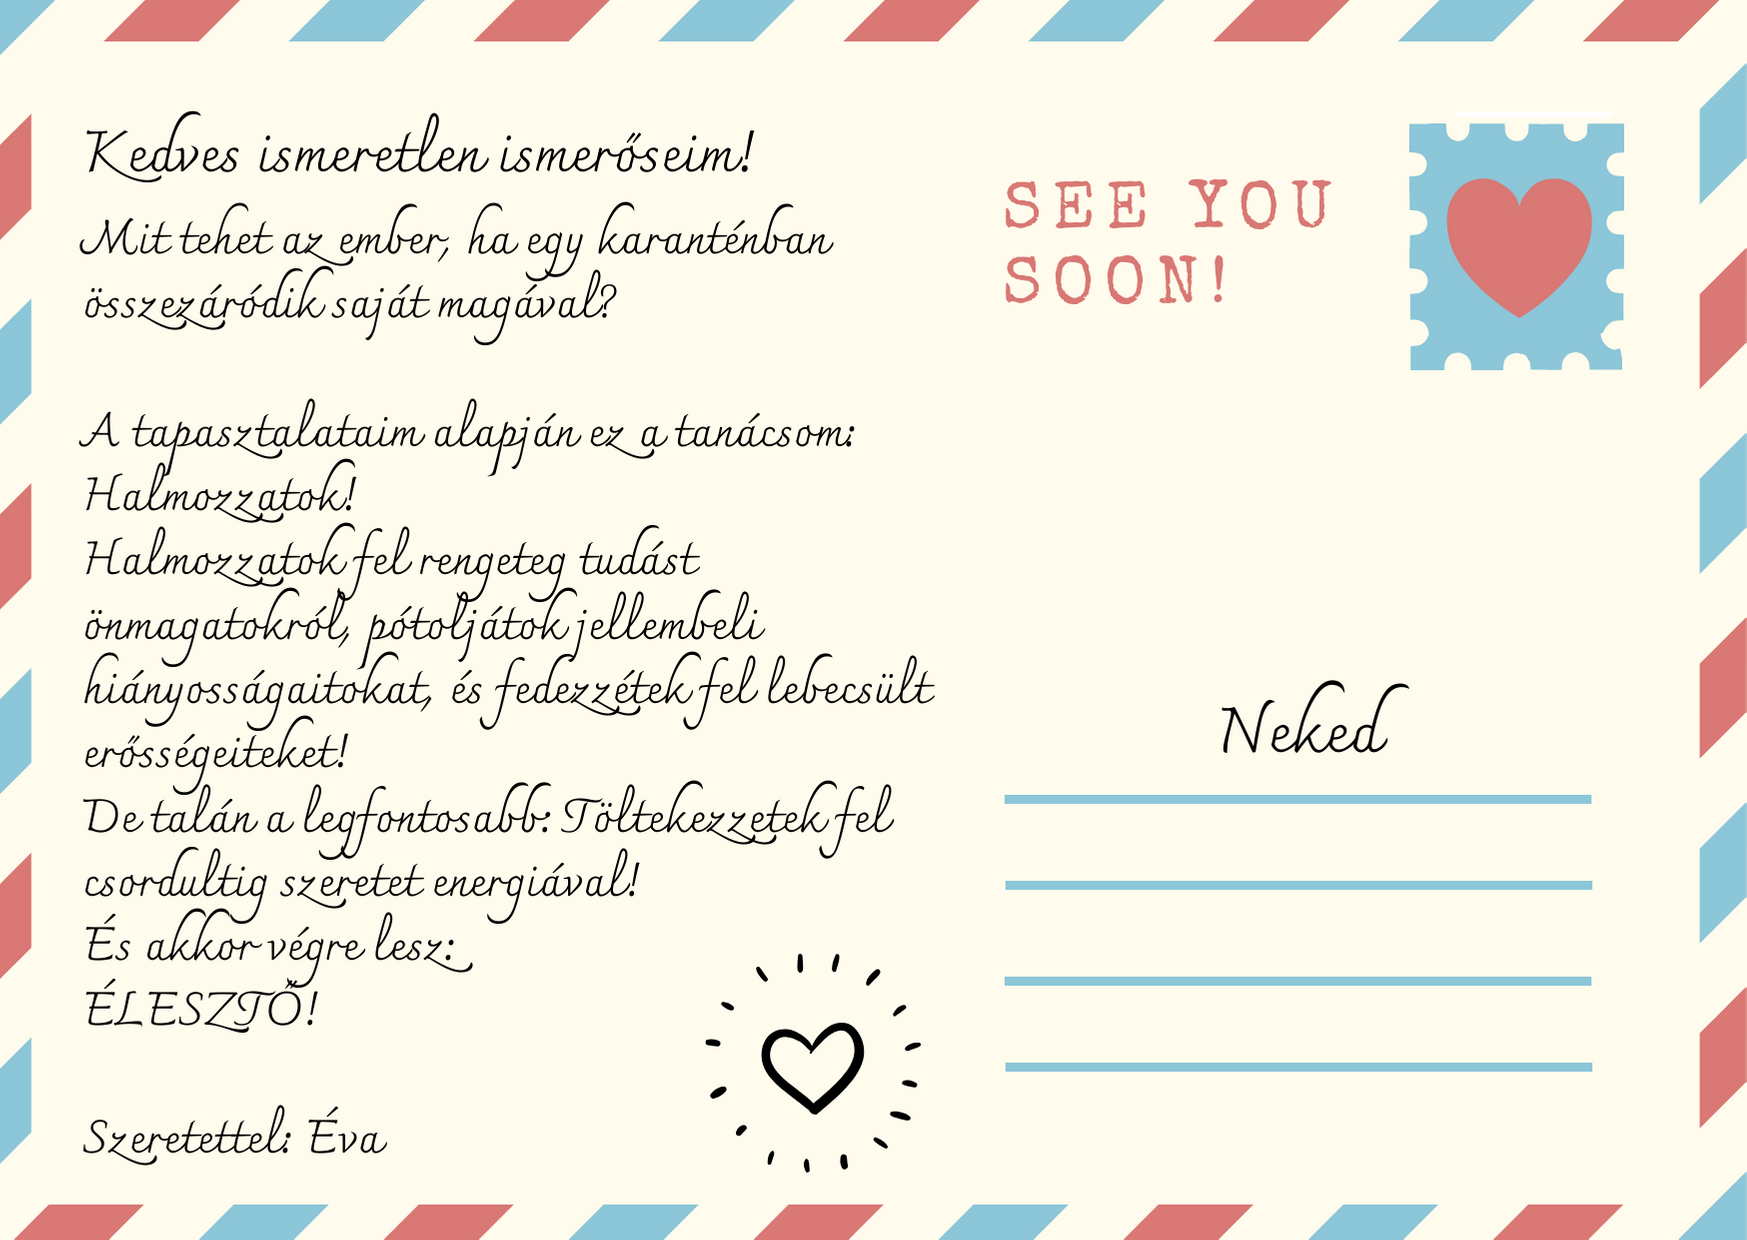 Kedves ismeretlen ismerőseim!
Mit tehet az ember, ha egy karanténban
összezáródik saját magával?
A tapasztalataim alapján ez a tanácsom:
Halmozzatok!
Halmozzatok fel rengeteg tudást
önmagatokról, pótoljátok jellembeli
hiányosságaitokat, és fedezzétek fel lebecsült
erősségeiteket!
De talán a legfontosabb: Töltekezzetek fel
csordultig szeretet energiával!
És akkor végre lesz:
ÉLESZTŐ!
Szeretettel: Éva
SEE YOU
SOON!
Neked